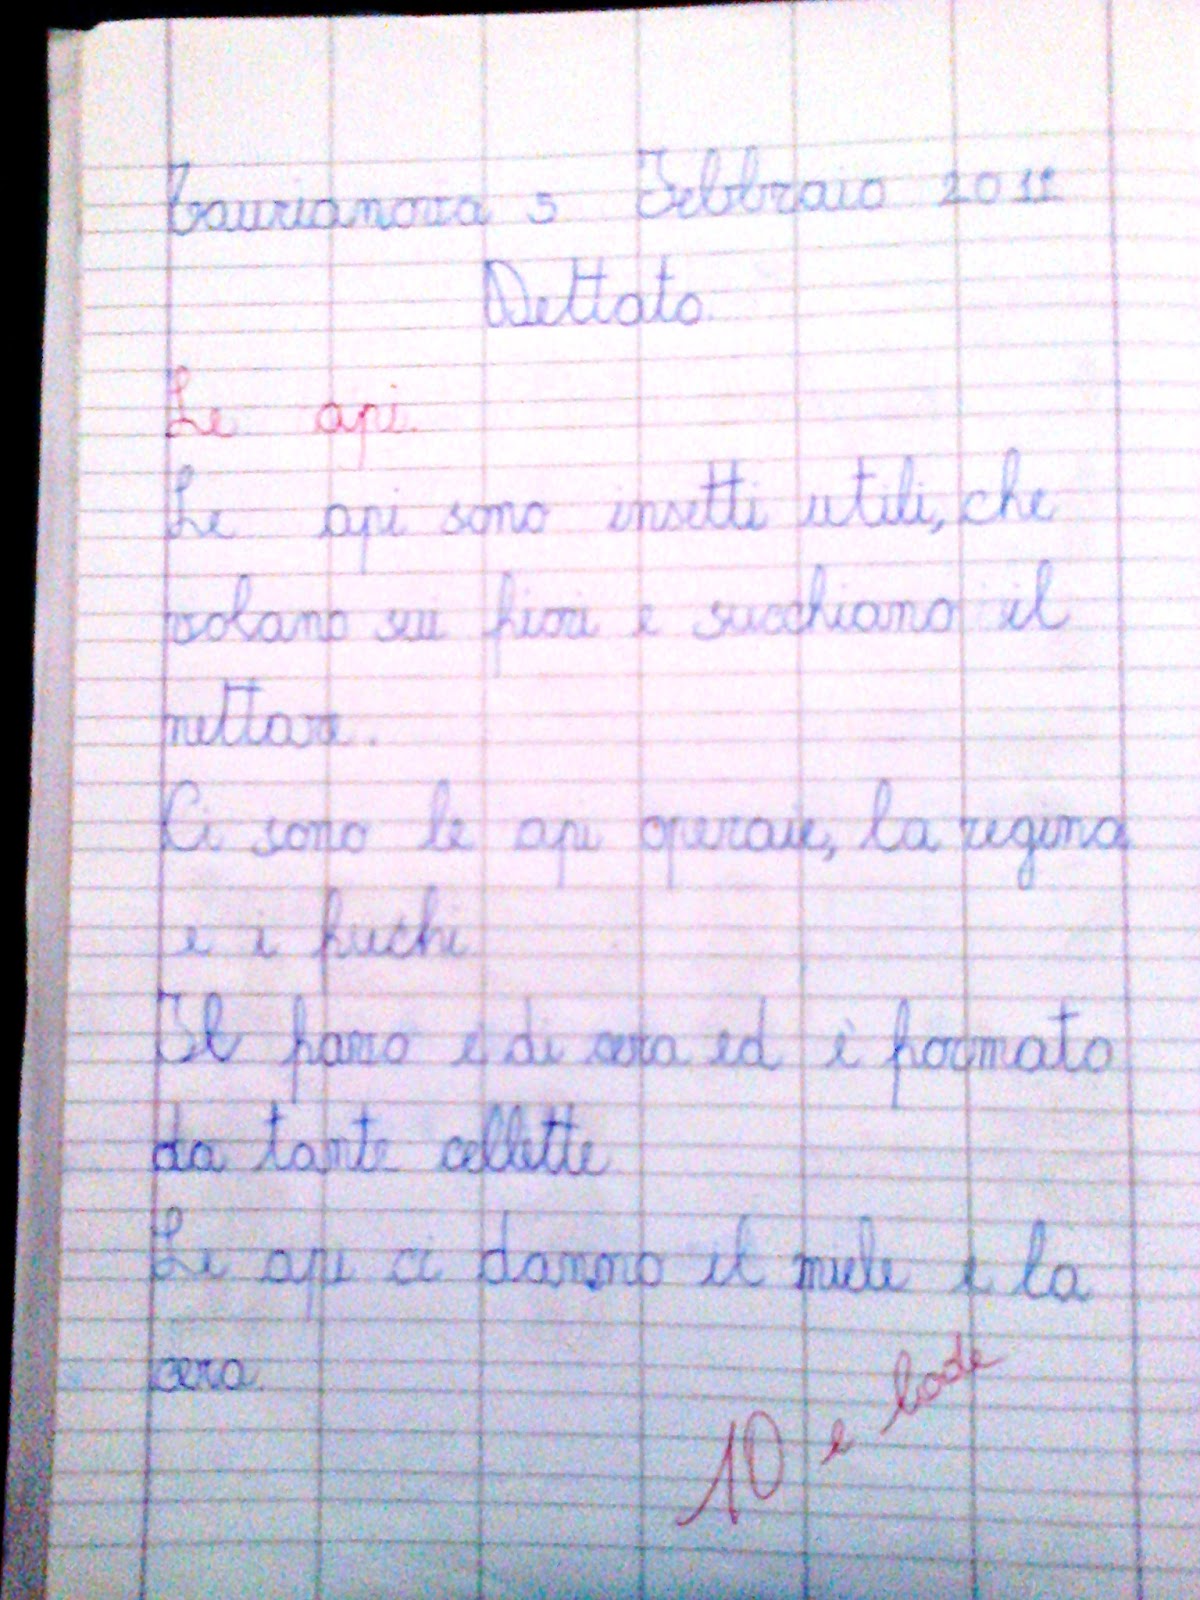 Taurianova 5 Febbraio 2011
Dettato
Le api.
Le api sono insetti utili, che
volano sui fiori e succhiano il
nettare.
Ci sono le api operaie, la regina
e i fuchi
Il favo è di cera ed è formato
da tante cellette
Le api ci danno il miele e la
cera.
10 e lode